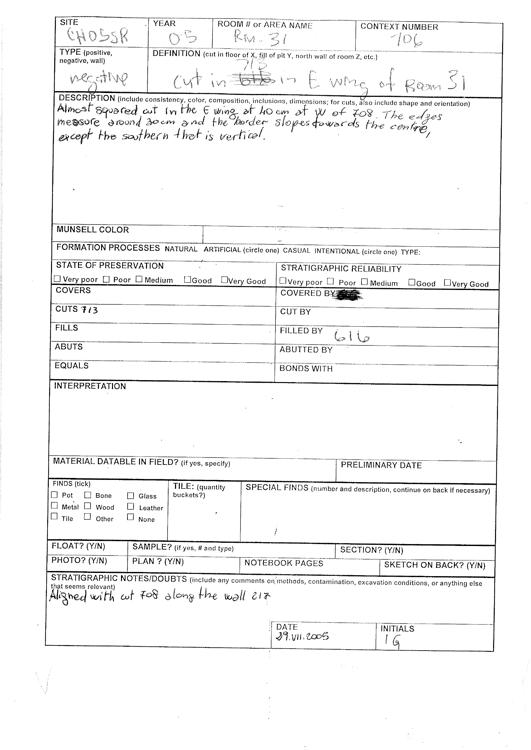 SITE YEAR ROOM # or AREA NAME CONTEXT NUMBER
CHOSSR 05 RM. 31 706
TYPE (positive, negative, wall) DEFINITION (cut in floor of X, fill of pit Y, north wall of room Z, etc.)
713
negative cut in in E wing of Room 31
DESCRIPTION (include consistency, color, composition, inclusions, dimensions; for cuts, also include shape and orientation)
Almost squared cut in the E wing at 40 cm at W of 708. The edges
measure around 30cm and the border slopes towards the centre,
except the southern that is vertical.
MUNSELL COLOR
FORMATION PROCESSES NATURAL ARTIFICIAL (circle one) CASUAL INTENTIONAL (circle one) TYPE:
STATE OF PRESERVATION STRATIGRAPHIC RELIABILITY
☐Very poor ☐ Poor ☐Medium ☐Good ☐Very Good ☐Very poor ☐ Poor ☐Medium ☐Good ☐Very Good
COVERS COVERED BY
CUTS 713 CUT BY
FILLS FILLED BY 616
ABUTS ABUTTED BY
EQUALS BONDS WITH
INTERPRETATION
MATERIAL DATABLE IN FIELD? (if yes, specify) PRELIMINARY DATE
FINDS (tick) TILE: (quantity buckets?) SPECIAL FINDS (number and description, continue on back if necessary)
☐ Pot ☐ Bone ☐ Glass
☐ Metal ☐ Wood ☐ Leather
☐ Tile ☐ Other ☐ None
FLOAT? (Y/N) SAMPLE? (if yes, # and type) SECTION? (Y/N)
PHOTO? (Y/N) PLAN ? (Y/N) NOTEBOOK PAGES SKETCH ON BACK? (Y/N)
STRATIGRAPHIC NOTES/DOUBTS (include any comments on methods, contamination, excavation conditions, or anything else
that seems relevant)
Aligned with cut 708 along the wall 217
DATE INITIALS
29.VII.2005 IG